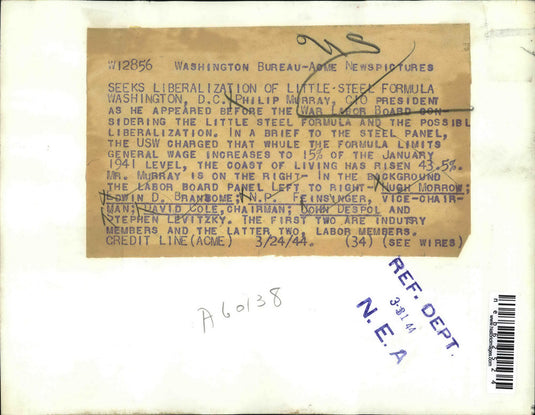 W12856 WASHINGTON BUREAU-ACME NEWSPICTURES
SEEKS LIBERALIZATION OF LITTLE-STEEL FORMULA
WASHINGTON, D.C. PHILIP MURRAY, CIO PRESIDENT
AS HE APPEARED BEFORE THE WAR LABOR BOARD CON-
SIDERING THE LITTLE STEEL FORMULA AND THE POSSIBL
LIBERALIZATION. IN A BRIEF TO THE STEEL PANEL,
THE USW CHARGED THAT WHULE THE FORMULA LIMITS
GENERAL WAGE INCREASES TO 15% OF THE JANUARY
1941 LEVEL, THE COAST OF LIVING HAS RISEN 43.5%.
MR. MURRAY IS ON THE RIGHT- IN THE BACKGROUND
THE LABOR BOARD PANEL LEFT TO RIGHT- HUGH MORROW;
EDWIN D. BRANSOME; N.P. FEINSINGER, VICE-CHAIR-
MAN; DAVID COLE, CHAIRMAN; JOHN DESPOL AND
STEPHEN LEVITZKY. THE FIRST TWO ARE INDUTRY
MEMBERS AND THE LATTER TWO, LABOR MEMBERS.
CREDIT LINE (ACME) 3/24/44. (34) (SEE WIRES)
A60138
REF. DEPT.
3-31-44
N.E.A